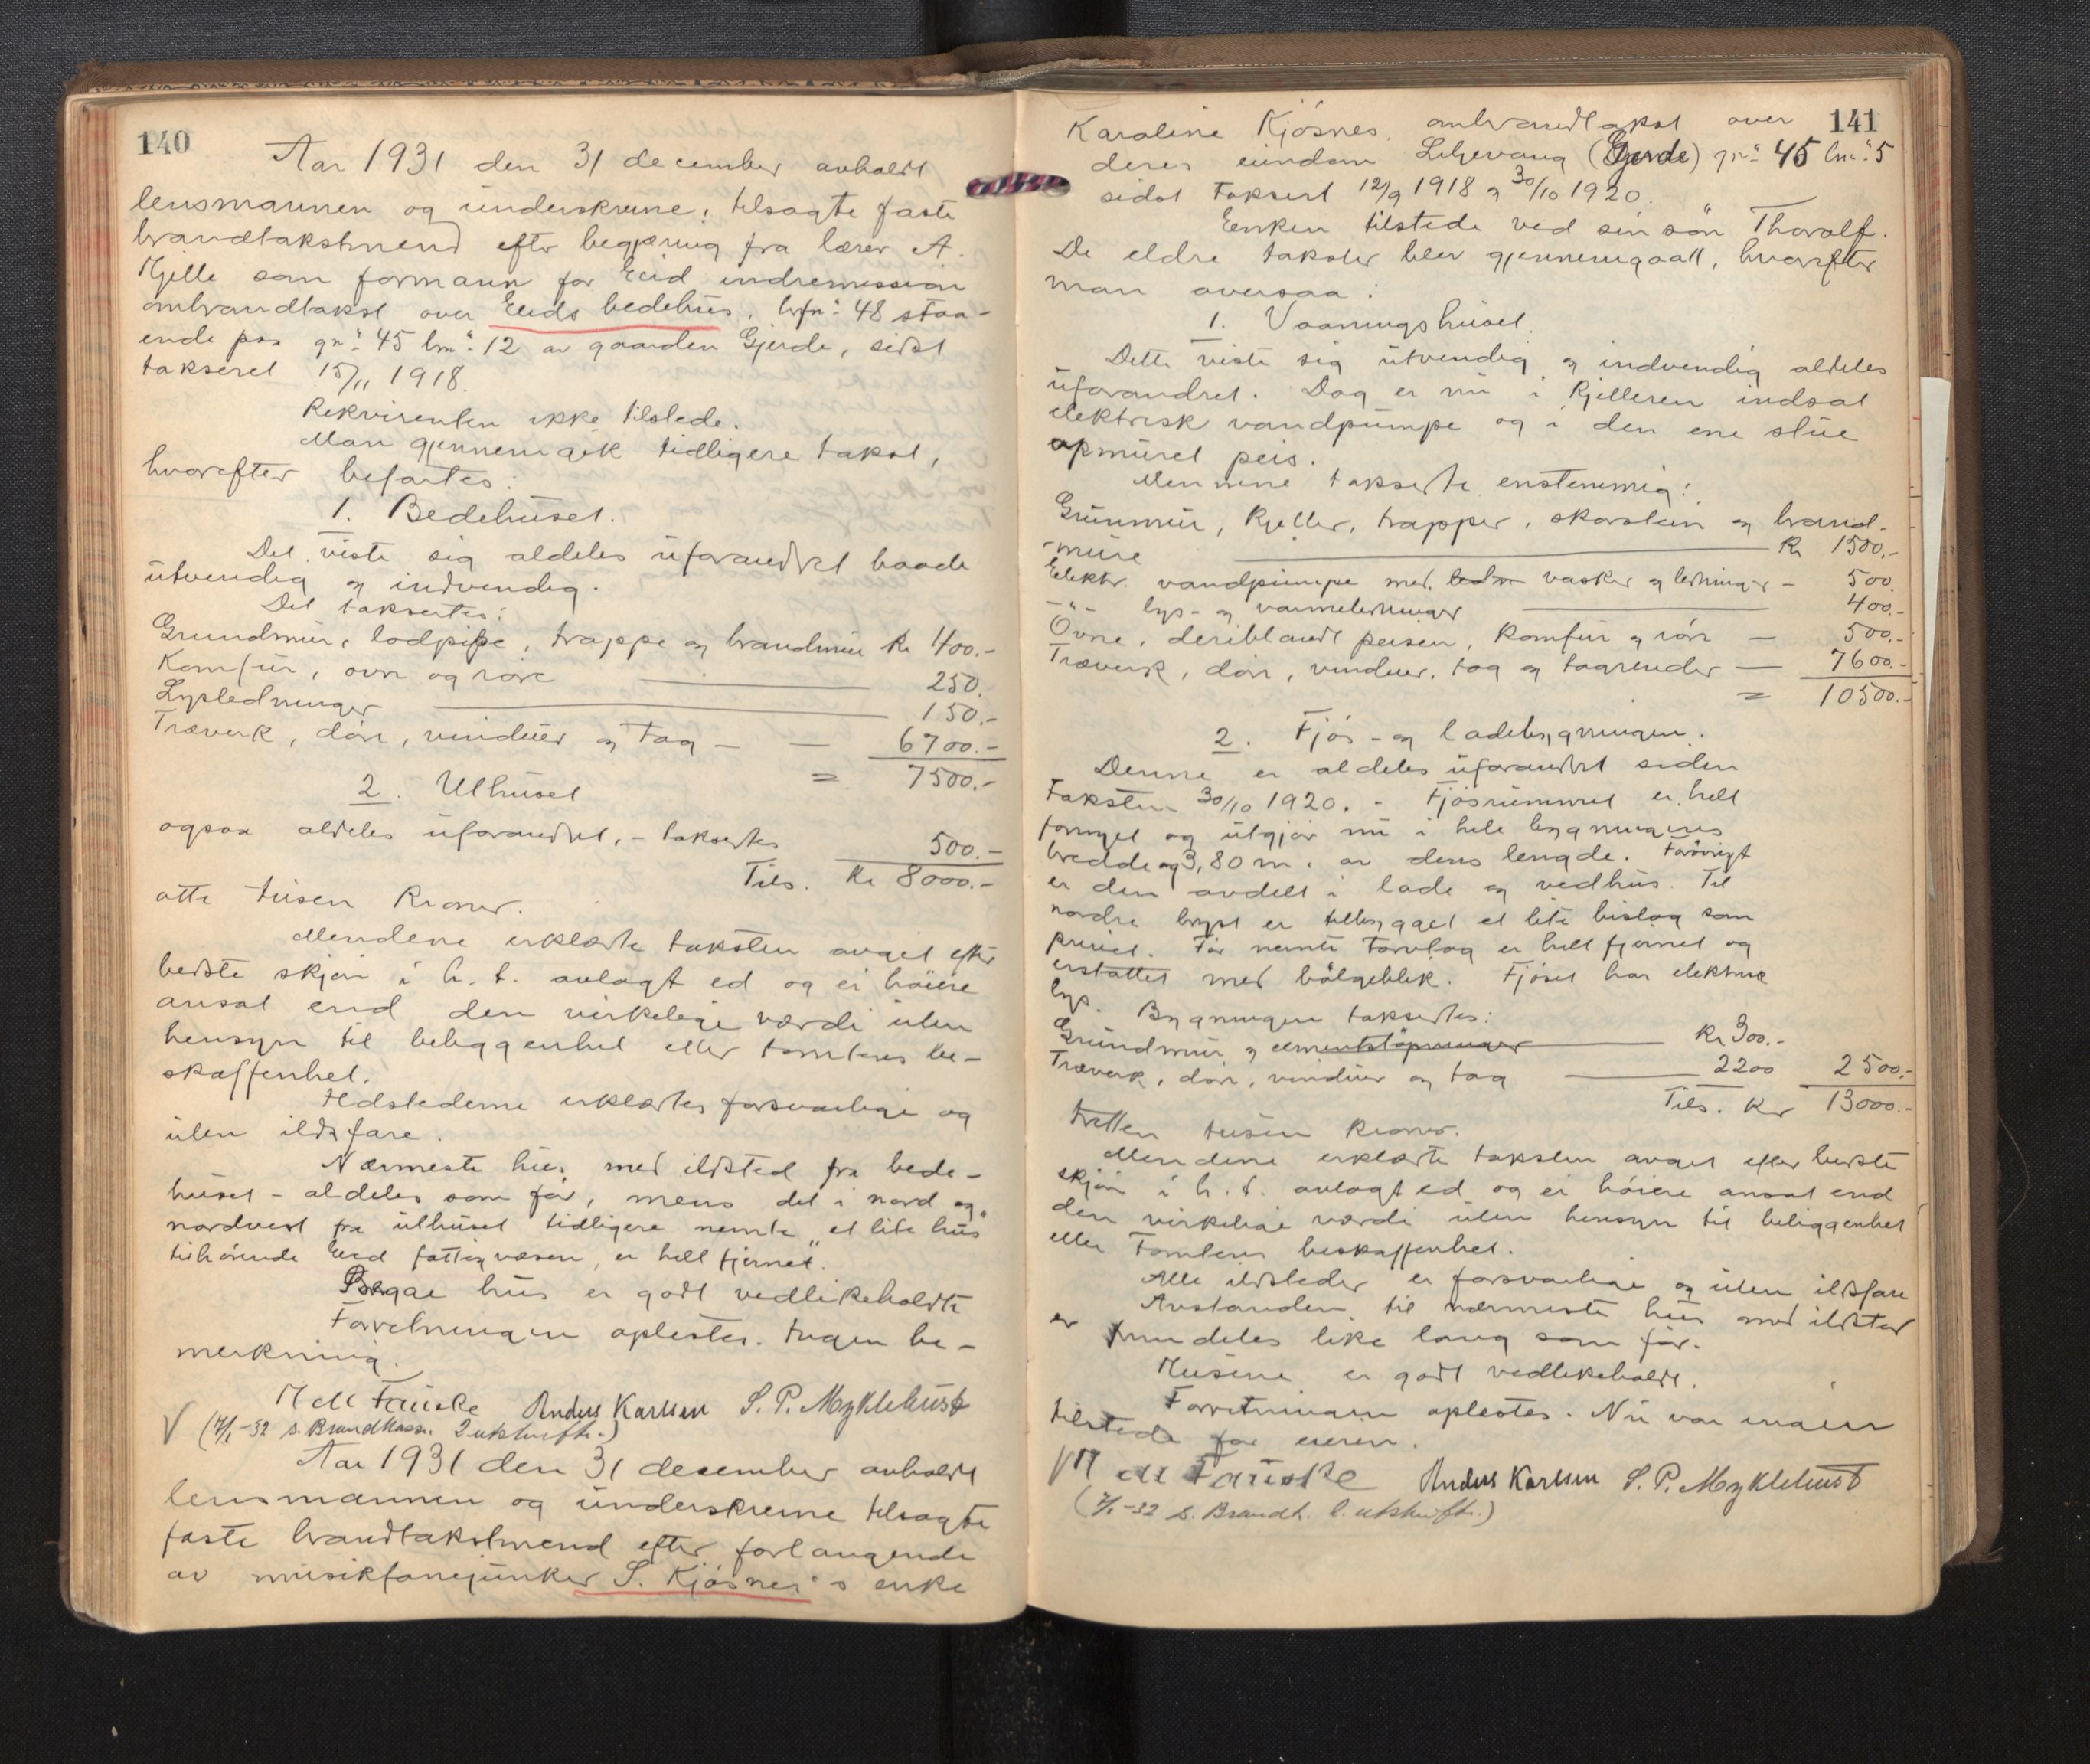 140
Aar 1931 den 31 december avholdt
lensmannen og underskrevne, tilsagte faste
brandtakstmend efter begjæring fra lærer A.
Hjelle som formann for Eid indremission
ombrandtakst over Eids bedehus, brfnº 48 staa-
ende paa gnº 45 bnº 12 av gaarden Gjerde, sidst
takseret 15/11 1918.
Rekvirenten ikke tilstede.
Man gjennemgik tidligere takst,
hvorefter befartes:
1. Bedehuset.
Det viste sig aldeles uforandret baade
utvendig og indvendig.
Det taksertes:
Grundmur, lodpipe, trappe og brandmur Kr 400.-
Komfur, ovn og rør 250.
Lysledninger 150.-
Træverk, dør, vinduer og tag - - 6700.-
= 7500.-
2. Uthuset
ogsaa aldeles uforandret, - taksertes 500.-
Tils. Kr 8000.-
otte tusen Kroner.
Mendene erklærte taksten avget efter
bedste skjøn i h. t. avlagt ed og ei høiere
ansat end den virkelige værdi uten
hensyn til beliggenhet eller tomtens be-
skaffenhet.
Ildstederne erklærtes forsvarlige og
uten ildsfare.
Nærmeste hus med ildsted fra bede-
huset - aldeles som før, mens det i nord og
nordvest fra uthuset tidligere nemte "et lite hus"
tilhørende Eid fattigvæsen, er helt fjernet.
Begge hus er godt vedlikeholdte
Forretningen oplestes. Ingen be-
merkning.
M M Fauske Anders Karlsen S. P. Myklebust
V (7/1-32 s. Brandkassen 2 utskrifter.)
Aar 1931 den 31 desember avholdt
lensmannen og underskrevne tilsagte
faste brandtakstmend efter forlangende
av musikfanejunker S. Kjøsnes's enke
141
Karoline Kjøsnes ombrandtakst over
deres eiendom Liljevang (Gjerde) gnº 45 bnº 5
sidst taksert 12/9 1918 og 30/10 1920.
Enken tilstede ved sin søn Thoralf.
De eldre takster blev gjennemgaatt, hvorefter
man oversaa:
1. Vaaningshuset.
Dette viste sig utvendig og indvendig aldeles
uforandret. Dog er nu i Kjelleren indsat
elektrisk vandpumpe og i den ene stue
opmuret peis.
Mennene takserte enstemmig:
Grunmur, Kjeller, trapper, skorstein og brand-
-mure Kr 1500.-
Elektr. vandpumpe med vasker og ledninger - 500.
-"- lys- og varmeledninger 400.-
Ovne, deriblandt peisen, Komfur og rør - 500.-
Træverk, dør, vinduer, tag og tagrender - 7600.-
= 10500.-
2. Fjøs- og ladebygningen.
Denne er aldeles uforandret siden
taksten 30/10 1920. - Fjøsrummet er helt
fornyet og utgjør nu i hele bygningens
bredde og 3,80 m. av dens lengde. Forøvrigt
er den avdelt i lade og vedhus. Til
nordre bryst er tilbygget et lite bislag som
privet. Før nemte torvtag er helt fjernet og
erstattet med bølgeblik. Fjøset har elektrisk
lys. Bygningen taksertes:
Grundmur og cementstøpninger Kr 300.-
Træverk, dør, vinduer og tag 2200 2500.-
Tils. Kr 13000.-
tretten tusen Kroner.
Mendene erklærte taksten avget efter bedste
skjøn i h. t. avlagt ed og ei høiere ansat end
den virkelige værdi uten hensyn til beliggenhet
eller tomtens beskaffenhet.
Alle ildsteder er forsvarlige og uten ildsfare
Avstanden til nærmeste hus med ildsted
er fremdeles like lang som før.
Husene er godt vedlikeholdt.
Forretningen oplestes. Nu var ingen
tilstede for eieren.
V M M Fauske Anders Karlsen S. P. Myklebust
(7/1-32 s. Brandk. 2 utskrifter.)